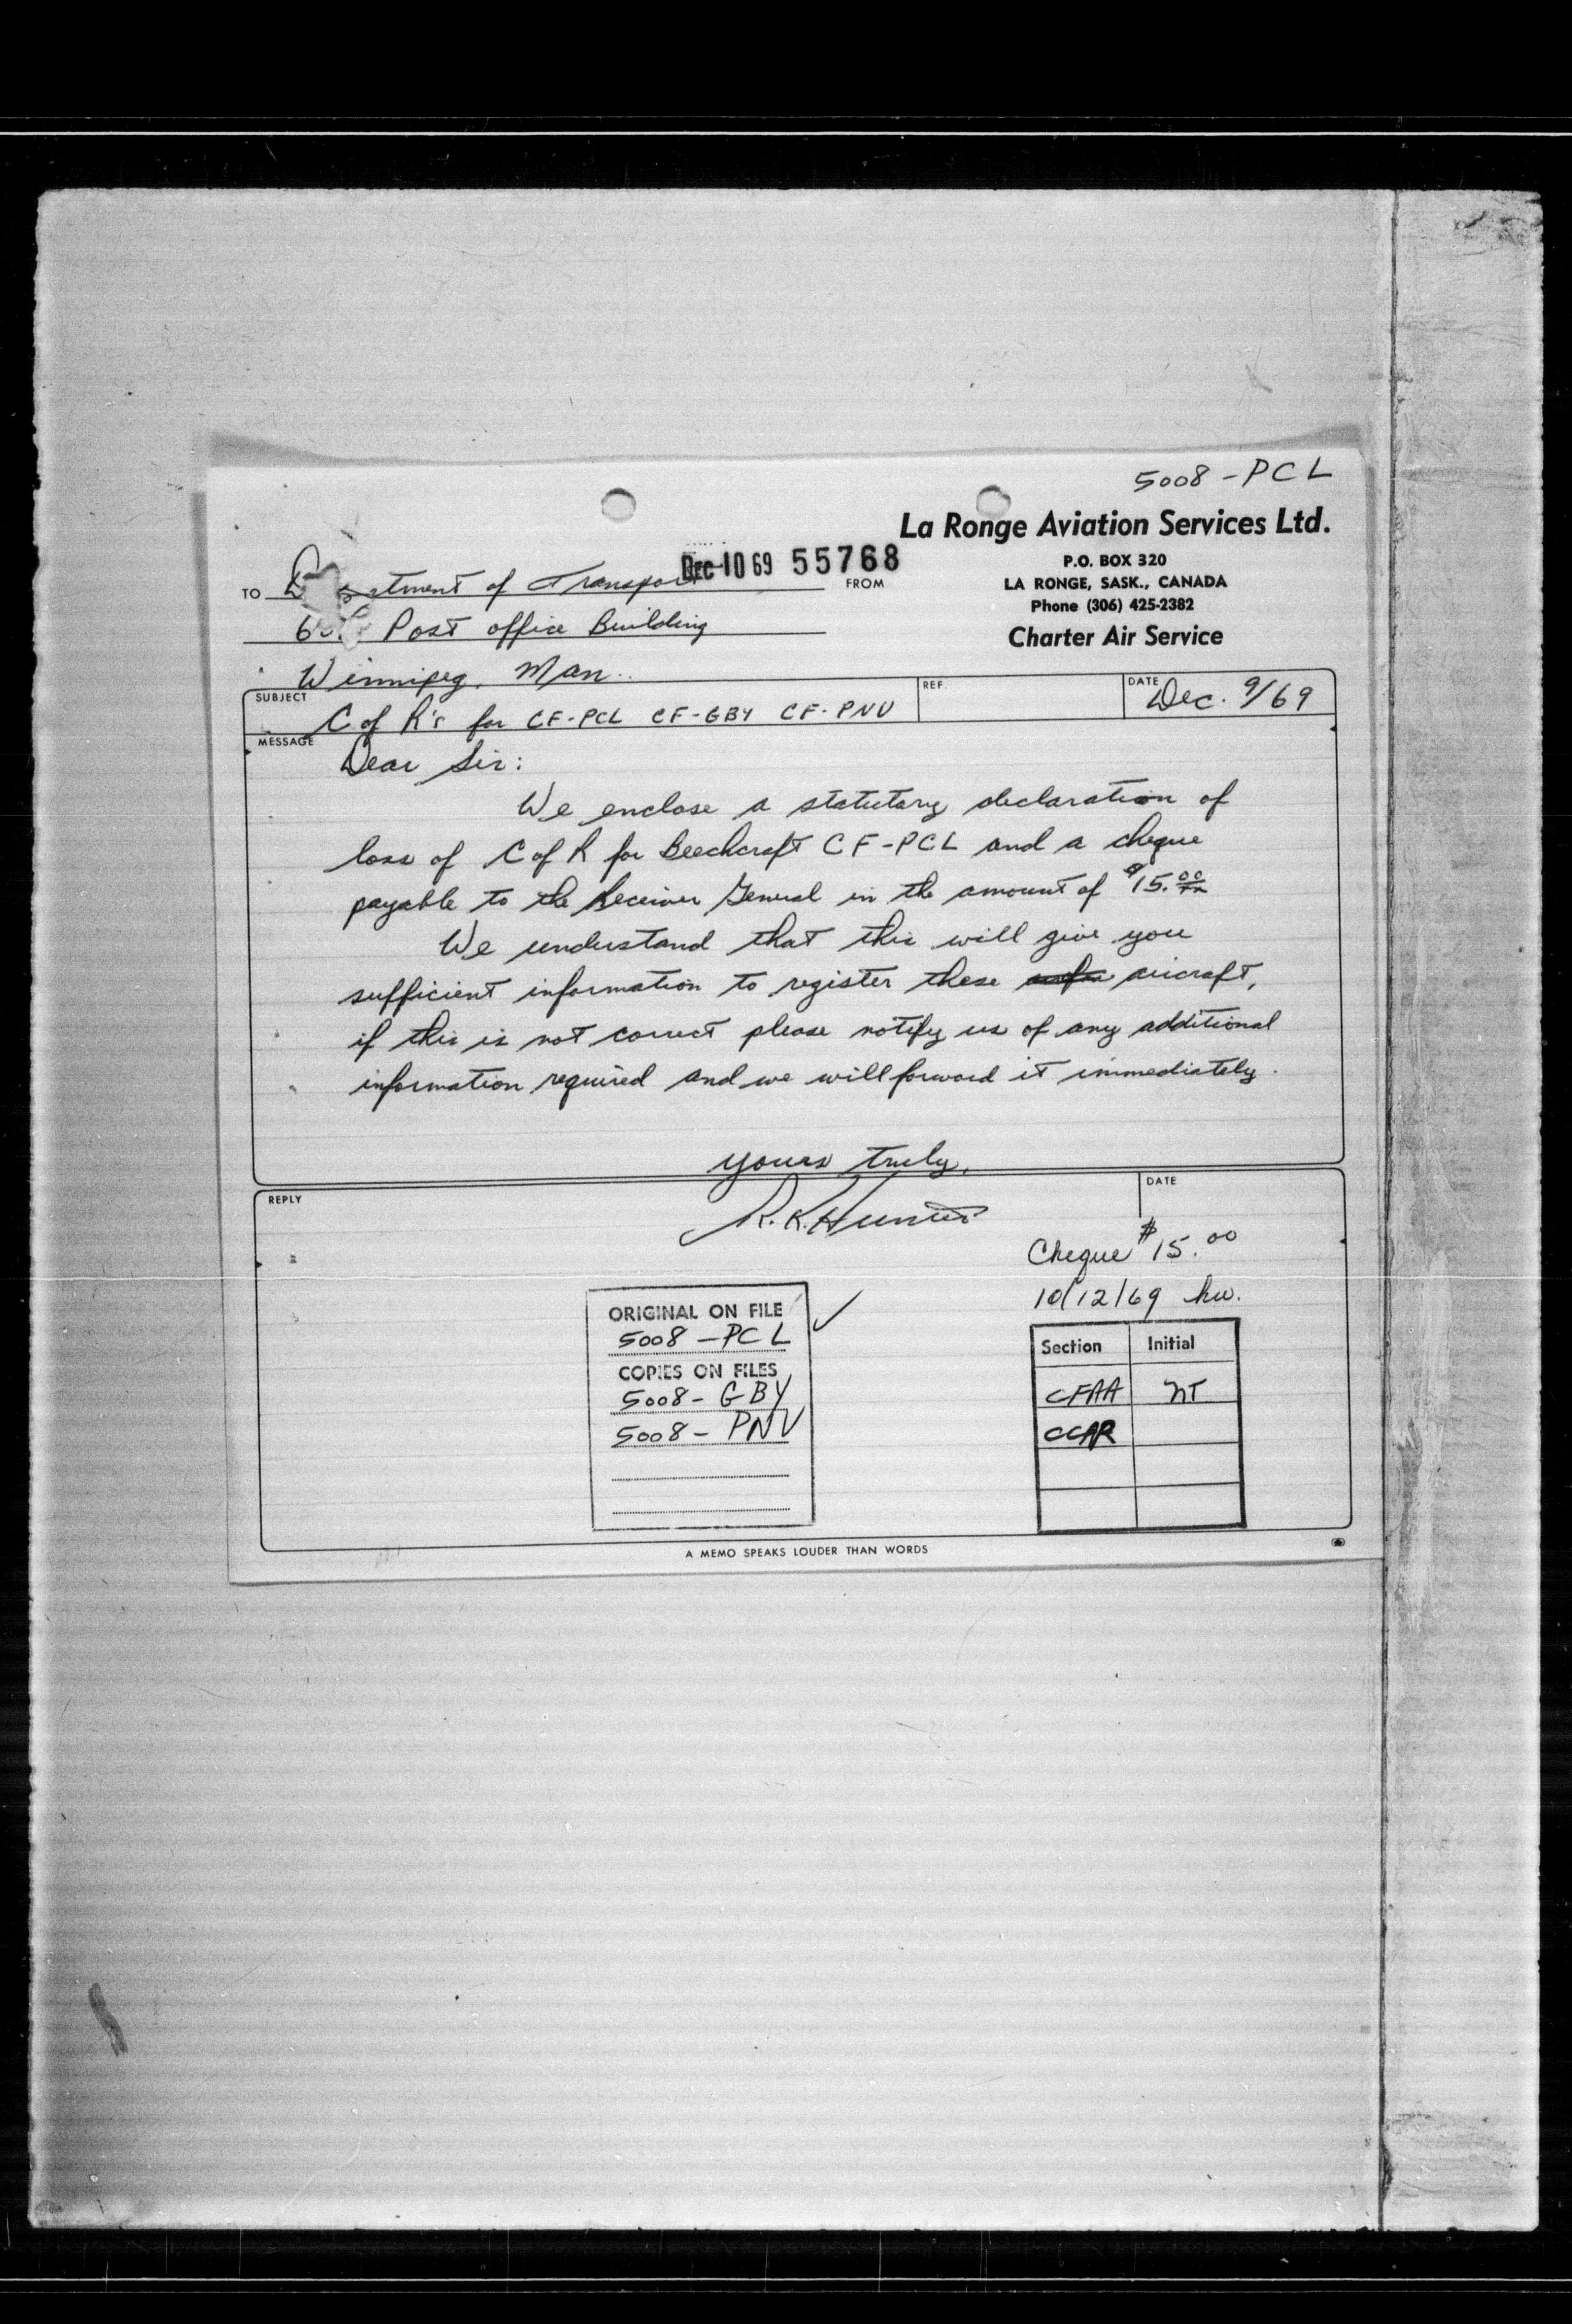 5008-PCL
La Ronge Aviation Services Ltd.
P.O. BOX 320
LA RONGE, SASK., CANADA
Phone (306) 425-2382
Charter Air Service
Dec 10 69 55768
FROM
TO Department of Transport
Post office Building
Winnipeg, Man.
SUBJECT C of R's for CF-PCL CF-GBY CF-PNV
REF.
DATE Dec. 9/69
MESSAGE
Dear Sir:
We enclose a statutary declaration of
loss of C of R for Beechcraft CF-PCL and a cheque
payable to the Receiver General in the amount of $15.00
We understand that this will give you
sufficient information to register these aircraft,
if this is not correct please notify us of any additional
information required and we will forward it immediately.
yours truly,
REPLY
DATE
R. K. Hunter
Cheque $15.00
10/12/69 hw.
ORIGINAL ON FILE
5008-PCL
COPIES ON FILES
5008-GBY
5008-PNV
Section Initial
CFAA NT
CCAR
A MEMO SPEAKS LOUDER THAN WORDS